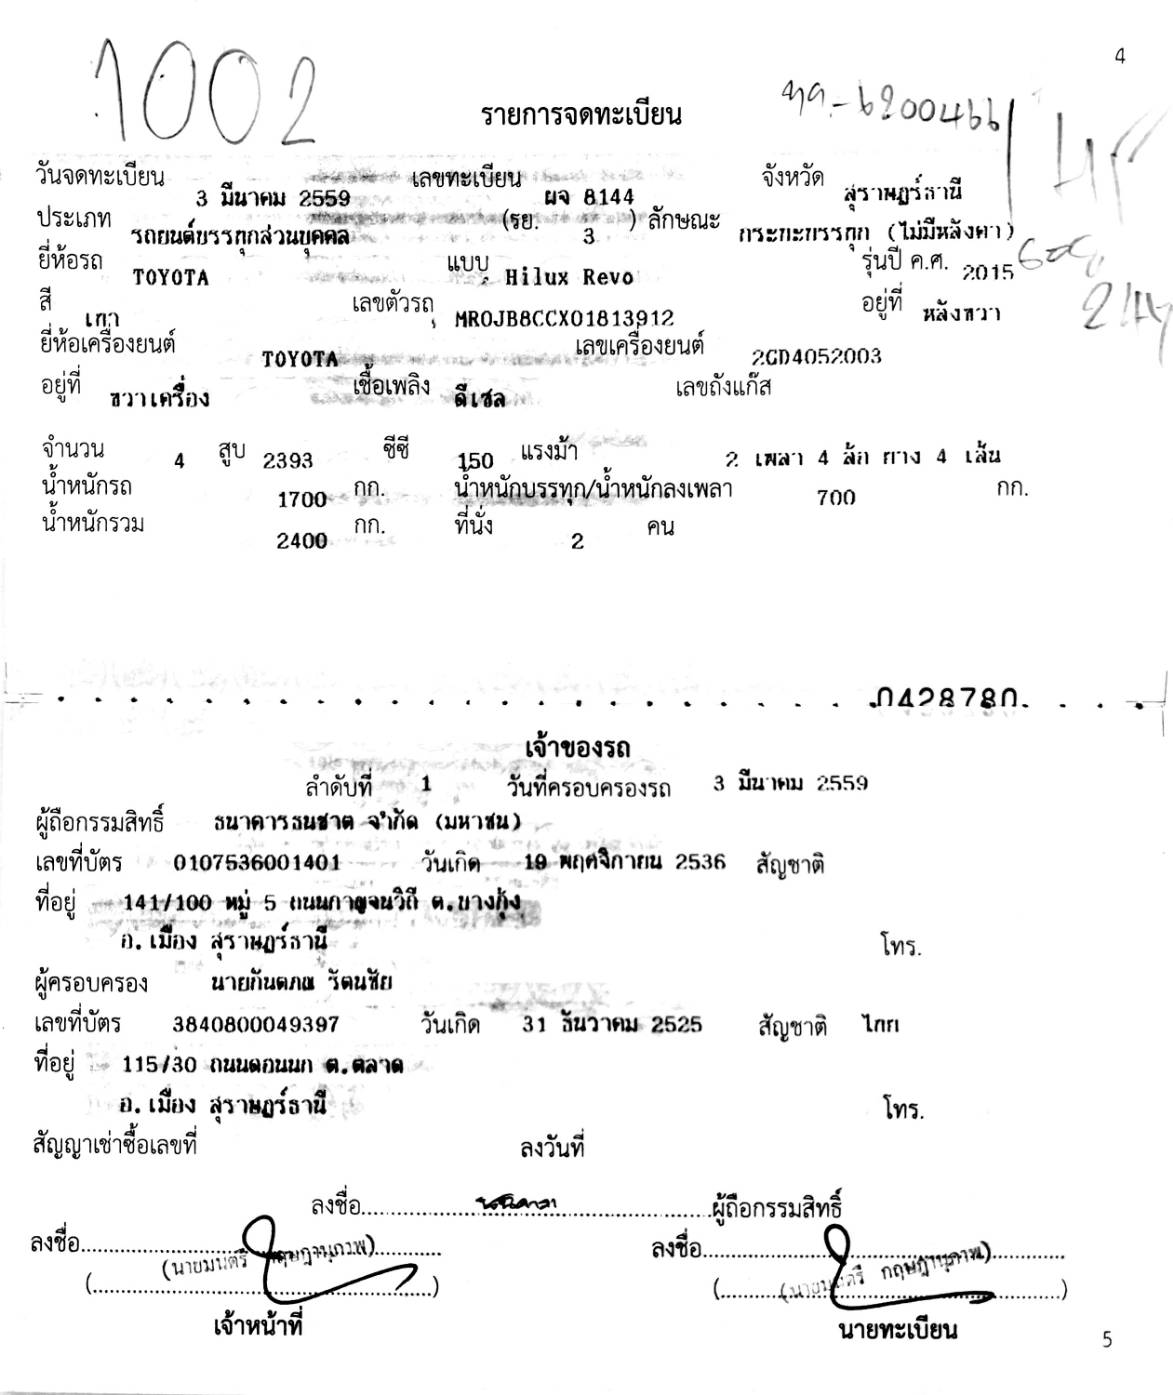 4
1002
รายการจดทะเบียน
วันจดทะเบียน 3 มีนาคม 2559 เลขทะเบียน ผจ 8144 จังหวัด สุราษฎร์ธานี
ประเภท รถยนต์บรรทุกส่วนบุคคล (รย. 3 ) ลักษณะ กระบะบรรทุก (ไม่มีหลังคา)
ยี่ห้อรถ TOYOTA แบบ Hilux Revo รุ่นปี ค.ศ. 2015
สี เทา เลขตัวรถ MR0JB8CCX01813912 อยู่ที่ หลังขวา
ยี่ห้อเครื่องยนต์ TOYOTA เลขเครื่องยนต์ 2GD4052003
อยู่ที่ ขวาเครื่อง เชื้อเพลิง ดีเซล เลขถังแก๊ส
จำนวน 4 สูบ 2393 ซีซี 150 แรงม้า 2 เพลา 4 ล้อ ยาง 4 เส้น
น้ำหนักรถ 1700 กก. น้ำหนักบรรทุก/น้ำหนักลงเพลา 700 กก.
น้ำหนักรวม 2400 กก. ที่นั่ง 2 คน
0428780
เจ้าของรถ
ลำดับที่ 1 วันที่ครอบครองรถ 3 มีนาคม 2559
ผู้ถือกรรมสิทธิ์ ธนาคารธนชาต จำกัด (มหาชน)
เลขที่บัตร 0107536001401 วันเกิด 19 พฤศจิกายน 2536 สัญชาติ
ที่อยู่ 141/100 หมู่ 5 ถนนกาญจนวิถี ต.บางกุ้ง
อ.เมือง สุราษฎร์ธานี โทร.
ผู้ครอบครอง นายกันตภณ รัตนชัย
เลขที่บัตร 3840800049397 วันเกิด 31 ธันวาคม 2525 สัญชาติ ไทย
ที่อยู่ 115/30 ถนนดอนนก ต.ตลาด
อ.เมือง สุราษฎร์ธานี โทร.
สัญญาเช่าซื้อเลขที่ ลงวันที่
ลงชื่อ ผู้ถือกรรมสิทธิ์
ลงชื่อ ลงชื่อ
(นายมนตรี กฤษฎานุภาพ) (นายมนตรี กฤษฎานุภาพ)
เจ้าหน้าที่ นายทะเบียน
5